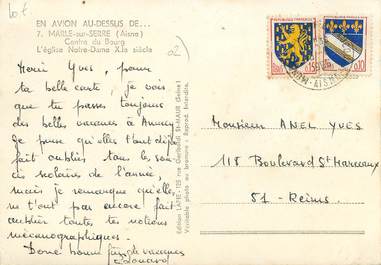 10 f
EN AVION AU-DESSUS DE...
7. MARLE-sur-SERRE (Aisne)
Centre du Bourg
L'église Notre-Dame XIe siècle
Merci Yves, pour
ta belle carte, je vois
que tu passes toujours
des belles vacances à Annecy
Je pense qu'elles t'ont déjà
fait oublier tous les sou-
cis scolaires de l'année,
mais je remarque qu'elles
ne t'ont pas encore fait
oublier toutes tes notions
mécanographiques.
Donc bonne fin de vacances
Edouard
Edition LAPIE - 115 rue ST-MAUR (Seine)
Véritable photo au bromure - Reprod. Interdite.
0,10
Monsieur ANEL YVES
118 Boulevard St Marceaux
51 - Reims.